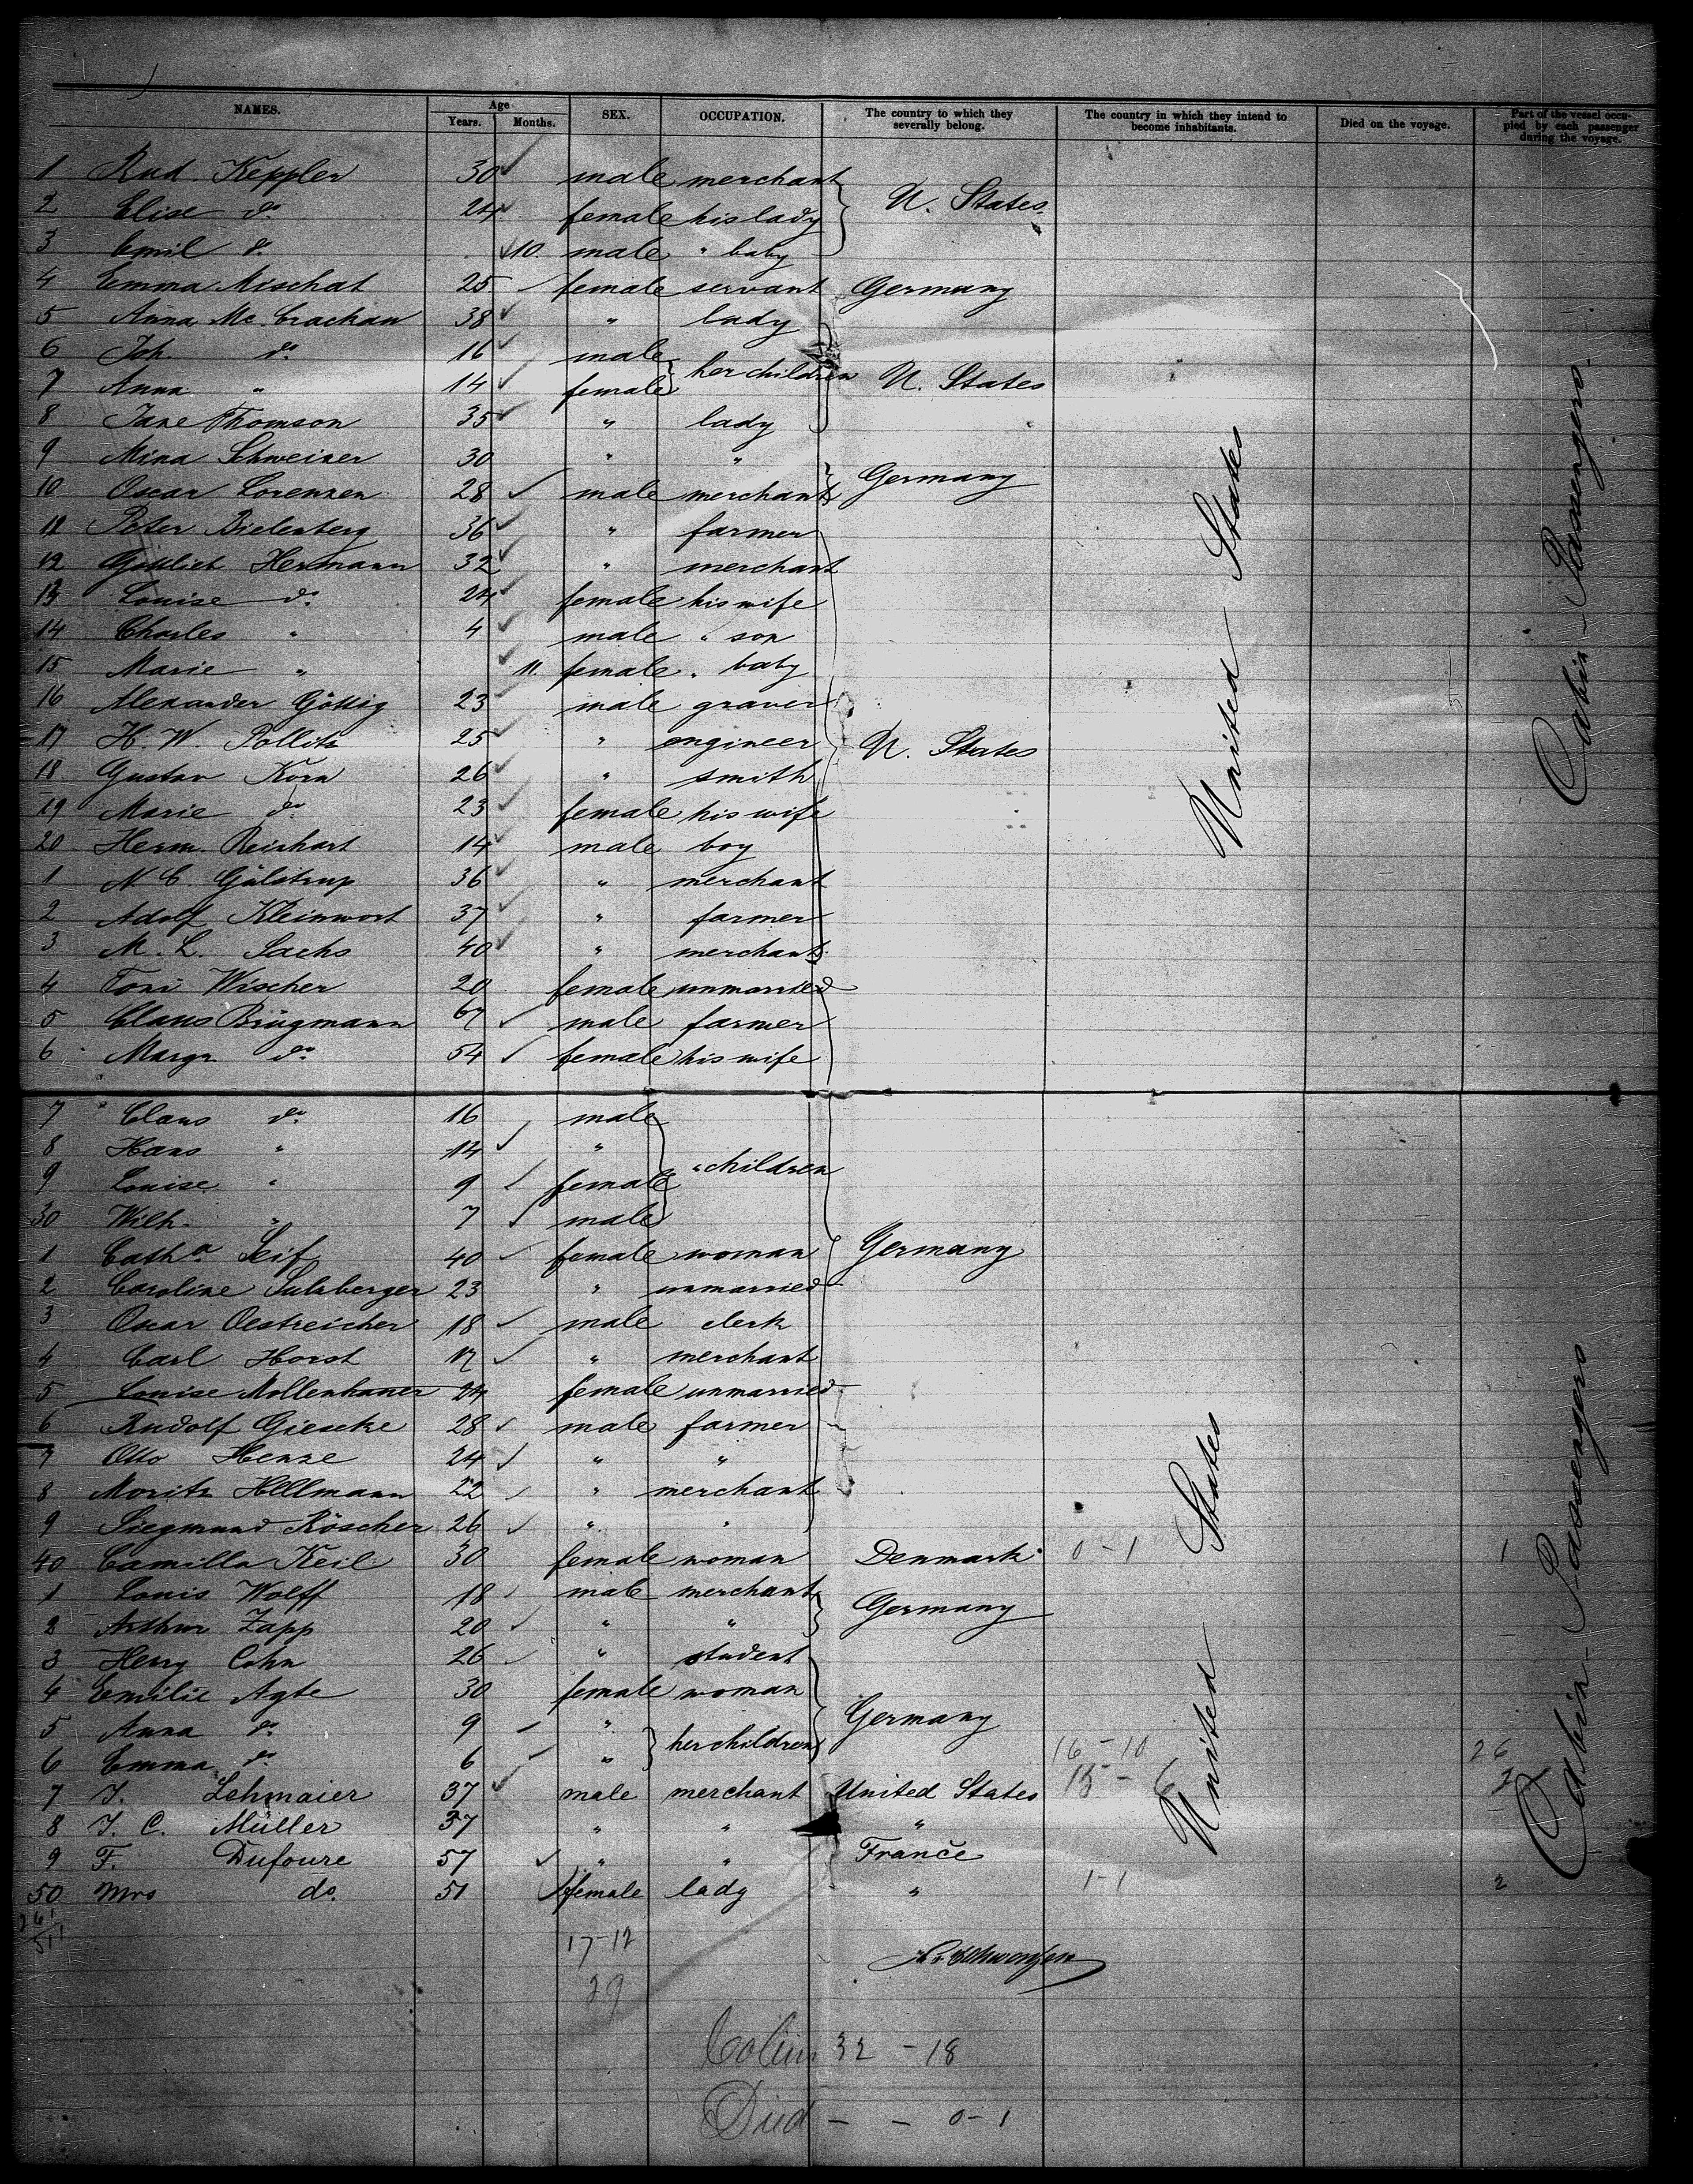 NAMES. Age Years. Months. SEX. OCCUPATION. The country to which they severally belong. The country in which they intend to become inhabitants. Died on the voyage. Part of the vessel occupied by each passenger during the voyage.
1 Rud. Keppler 30 male merchant
2 Elise do 24 female his lady U. States
3 Emil do 10 male " baby
4 Emma Mischat 25 female servant Germany
5 Anna Mc. Crachan 38 " lady
6 Joh do 16 male
7 Anna " 14 female her children U. States
8 Jane Thomson 35 " lady
9 Mina Schweizer 30 " "
10 Oscar Lorenzen 28 male merchant Germany
11 Peter Bielenberg 36 " farmer
12 Gottlieb Hermann 32 " merchant
13 Louise do 24 female his wife
14 Charles " 4 male " son
15 Marie " 11 female " baby
16 Alexander Göttig 23 male graver
17 H. W. Pollitz 25 " engineer U. States
18 Gustav Korn 26 " smith
19 Marie do 23 female his wife
20 Herm. Reinhart 14 male boy
1 N. C. Gülstrup 36 " merchant
2 Adolf Kleinwort 37 " farmer
3 M. L. Sachs 40 " merchant
4 Toni Wischer 20 female unmarried
5 Claus Brügmann 67 male farmer
6 Margr do 54 female his wife
7 Claus do 16 male
8 Hans " 14 "
9 Louise " 9 female " children
30 Wilh. " 7 male
1 Catha Seif 40 female woman Germany
2 Caroline Sulzberger 23 " unmarried
3 Oscar Oestreicher 18 male clerk
4 Carl Horst 17 " merchant
5 Louise Mollenhauer 24 female unmarried
6 Rudolf Giescke 28 male farmer
7 Otto Henze 24 " "
8 Moritz Hellmann 22 " merchant
9 Siegmund Röscher 26 " "
40 Camilla Keil 30 female woman Denmark 0-1 1
1 Louis Wolff 18 male merchant
2 Arthur Zapp 20 " " Germany
3 Henry Cohn 26 " student
4 Emilie Agte 30 female woman
5 Anna do 9 " Germany
6 Emma do 6 " her children 16-10 26
7 J. Lehmaier 37 male merchant United States 15-6
8 J. C. Müller 37 " " "
9 F. Dufoure 57 " " France
50 Mrs do. 51 female lady " 1-1 2
United States
Cabin Passengers
United States
Cabin Passengers
17-12
29
32 - 18
Died - - 0-1